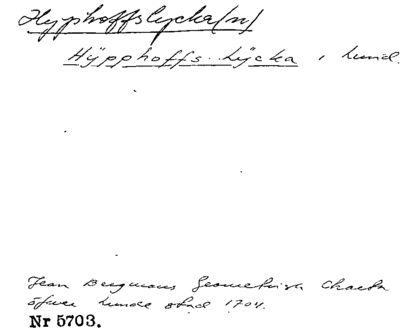 Hypphoffslycka(n)
Hÿpphoffs Lÿcka, Lund.
Jean Bergmans Geometrisk Charta
öfwer Lunde stad 1704.
Nr 5703.